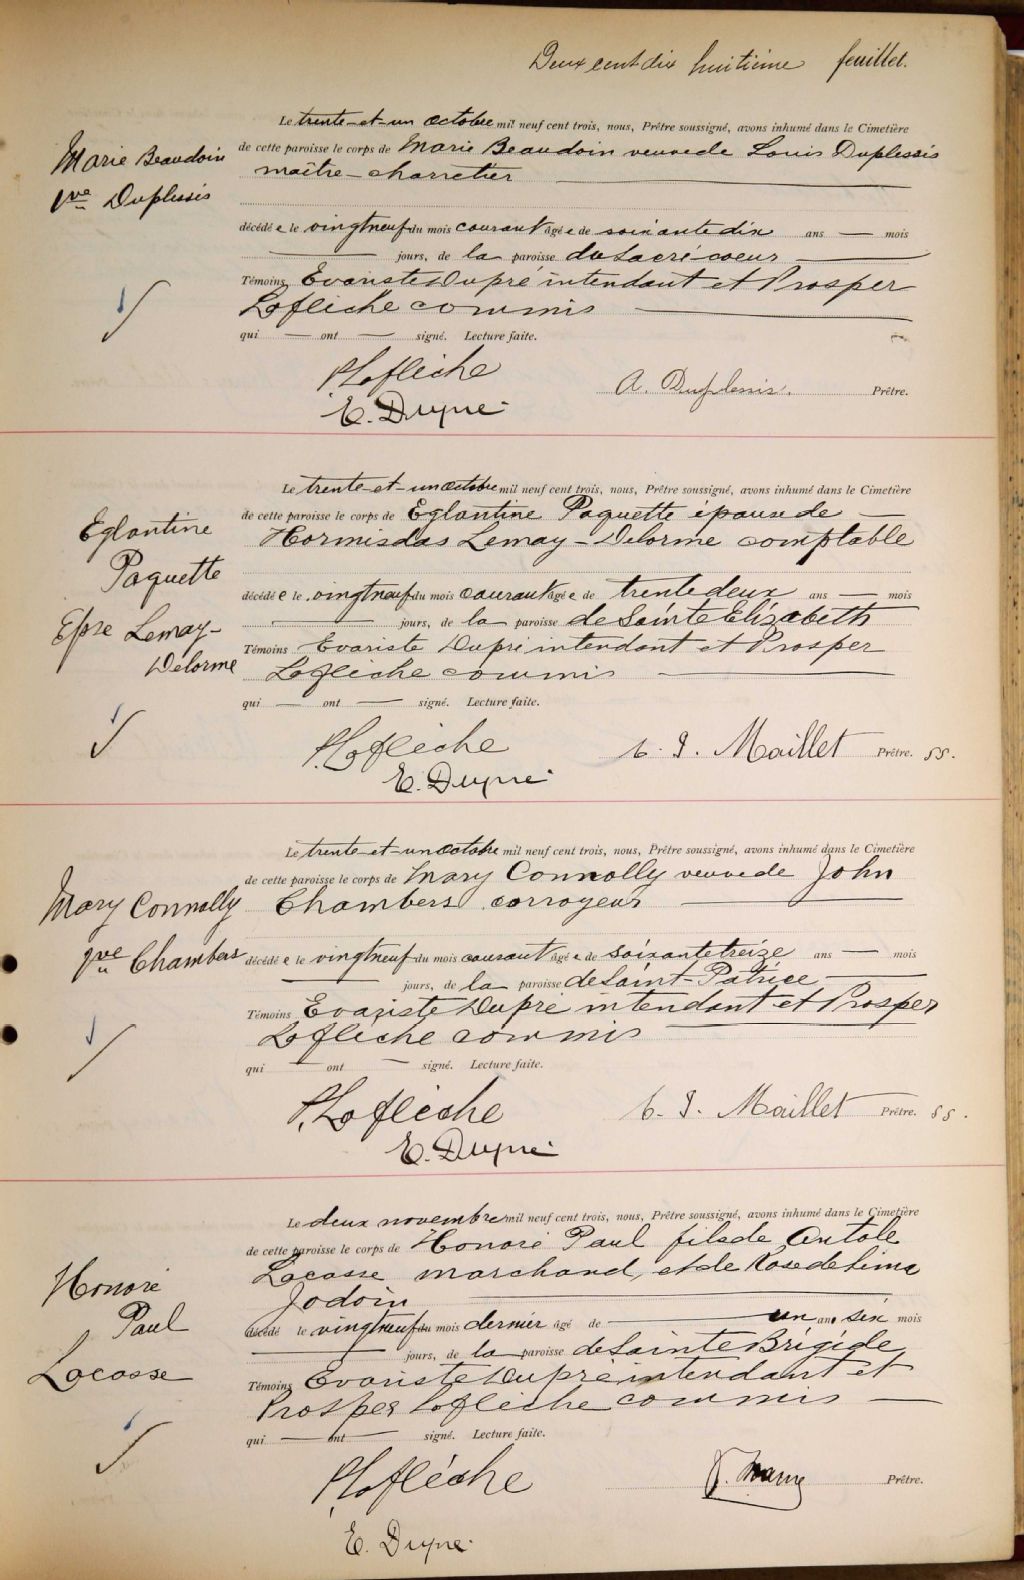 Deux cent dix huitième feuillet.
Marie Beaudoin
Vve Duplessis
Le trente-et-un octobre mil neuf cent trois, nous, Prêtre soussigné, avons inhumé dans le Cimetière
de cette paroisse le corps de Marie Beaudoin veuve de Louis Duplessis
maître-charretier
décédé e le vingtneuf du mois courant âgé e de soixante dix ans — mois
— jours, de la paroisse du Sacré coeur —
Témoins Evariste Dupré intendant et Prosper
Laflèche commis
qui — ont — signé. Lecture faite.
P. Laflèche
E. Dupré
A. Duplessis. Prêtre.
Eglantine
Paquette
Epse Lemay-
Delorme
Le trente-et-un octobre mil neuf cent trois, nous, Prêtre soussigné, avons inhumé dans le Cimetière
de cette paroisse le corps de Eglantine Paquette épouse de —
Hormisdas Lemay-Delorme comptable
décédé e le vingtneuf du mois courant âgé e de trente deux ans — mois
— jours, de la paroisse de Sainte Elizabeth
Témoins Evariste Dupré intendant et Prosper
Laflèche commis —
qui — ont — signé. Lecture faite.
P. Laflèche
E. Dupré
Maillet Prêtre. SS.
Mary Connolly
Vve Chambers
Le trente-et-un octobre mil neuf cent trois, nous, Prêtre soussigné, avons inhumé dans le Cimetière
de cette paroisse le corps de Mary Connolly veuve de John
Chambers corroyeur —
décédé e le vingtneuf du mois courant âgé e de soixante treize ans — mois
— jours, de la paroisse de Saint-Patrice —
Témoins Evariste Dupré intendant et Prosper
Laflèche commis —
qui — ont — signé. Lecture faite.
P. Laflèche
E. Dupré
Maillet Prêtre. SS.
Honoré
Paul
Lacasse
Le deux novembre mil neuf cent trois, nous, Prêtre soussigné, avons inhumé dans le Cimetière
de cette paroisse le corps de Honoré Paul fils de Antole
Lacasse marchand, et de Rose de Lima
Jodoin —
décédé le vingtneuf du mois dernier âgé de — un an six mois
— jours, de la paroisse de Sainte Brigide
Témoins Evariste Dupré intendant et
Prosper Laflèche commis —
qui — ont — signé. Lecture faite.
P. Laflèche
E. Dupré
Prêtre.